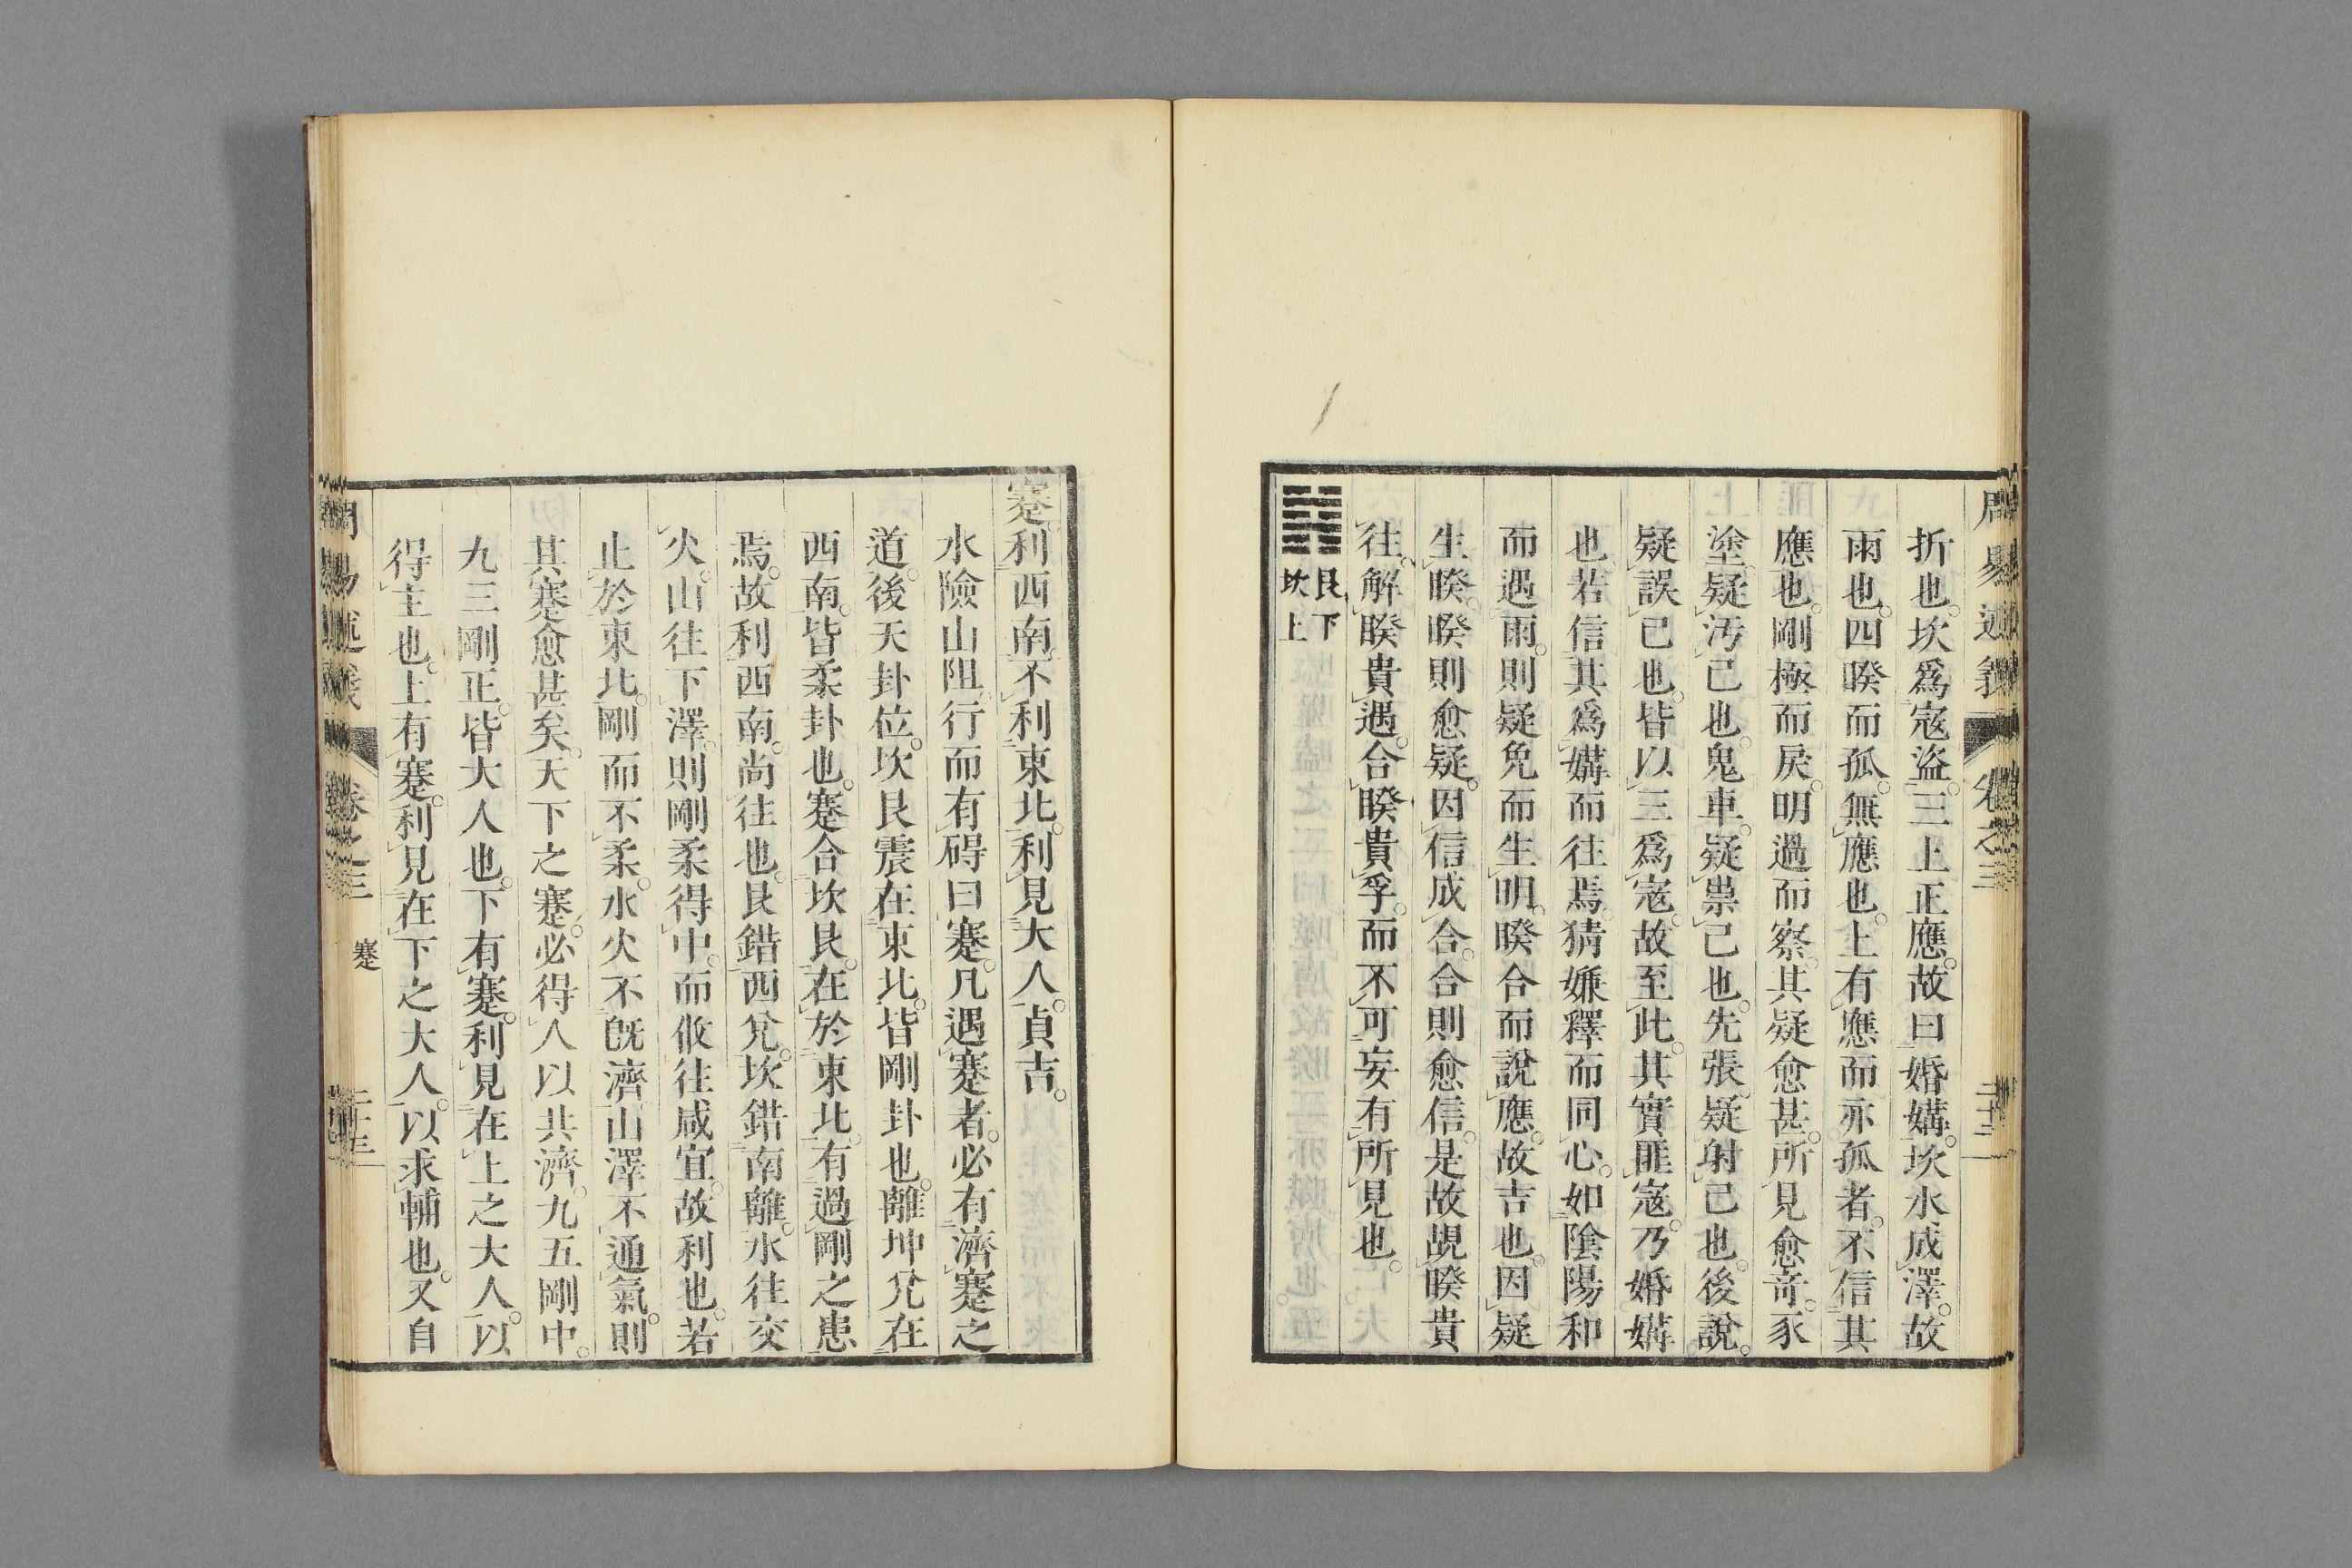 周易述義 卷之三 二十二
折也。坎爲寇盜。三上正應。故曰婚媾。坎水成澤。故
雨也。四睽而孤。無應也。上有應而亦孤者。不信其
應也。剛極而戾。明過而察。其疑愈甚。所見愈奇。豕
塗疑汚己也。鬼車。疑祟己也。先張。疑射己也。後說。
疑誤己也。皆以三爲寇。故至此。其實匪寇。乃婚媾
也。若信其爲媾而往焉。猜嫌釋而同心。如陰陽和
而遇雨。則疑免而生明。睽合而說應。故吉也。因疑
生睽。睽則愈疑。因信成合。合則愈信。是故覘睽貴
往。解睽貴遇。合睽貴孚。而不可妄有所見也。
艮下
坎上
蹇利西南。不利東北。利見大人。貞吉。
水險山阻。行而有碍曰蹇。凡遇蹇者。必有濟蹇之
道。後天卦位。坎艮震在東北。皆剛卦也。離坤兌在
西南。皆柔卦也。蹇合坎艮。在於東北。有過剛之患
焉。故利西南。尚往也。艮錯西兌。坎錯南離。水往交
火。山往下澤。則剛柔得中。而攸往咸宜。故利也。若
止於東北。剛而不柔。水火不旣濟。山澤不通氣。則
其蹇愈甚矣。天下之蹇。必得人以共濟。九五剛中。
九三剛正。皆大人也。下有蹇。利見在上之大人。以
得主也。上有蹇。利見在下之大人。以求輔也。又自
周易述義 卷之三 蹇 二十三